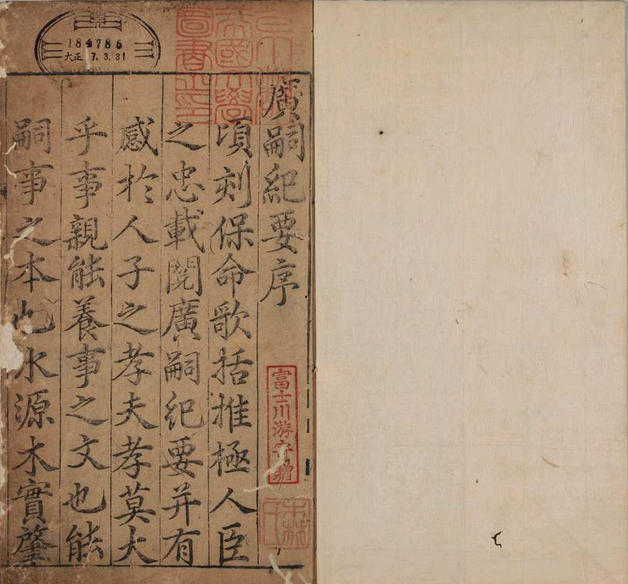 廣嗣紀要序
頃刻保命歌括推極人臣
之忠載閱廣嗣紀要并有
感於人子之孝夫孝莫大
乎事親能養事之文也能
嗣事之本也水源木實肇
184785
大正7.3.31
帝國大學圖書之印
富士川游寄贈